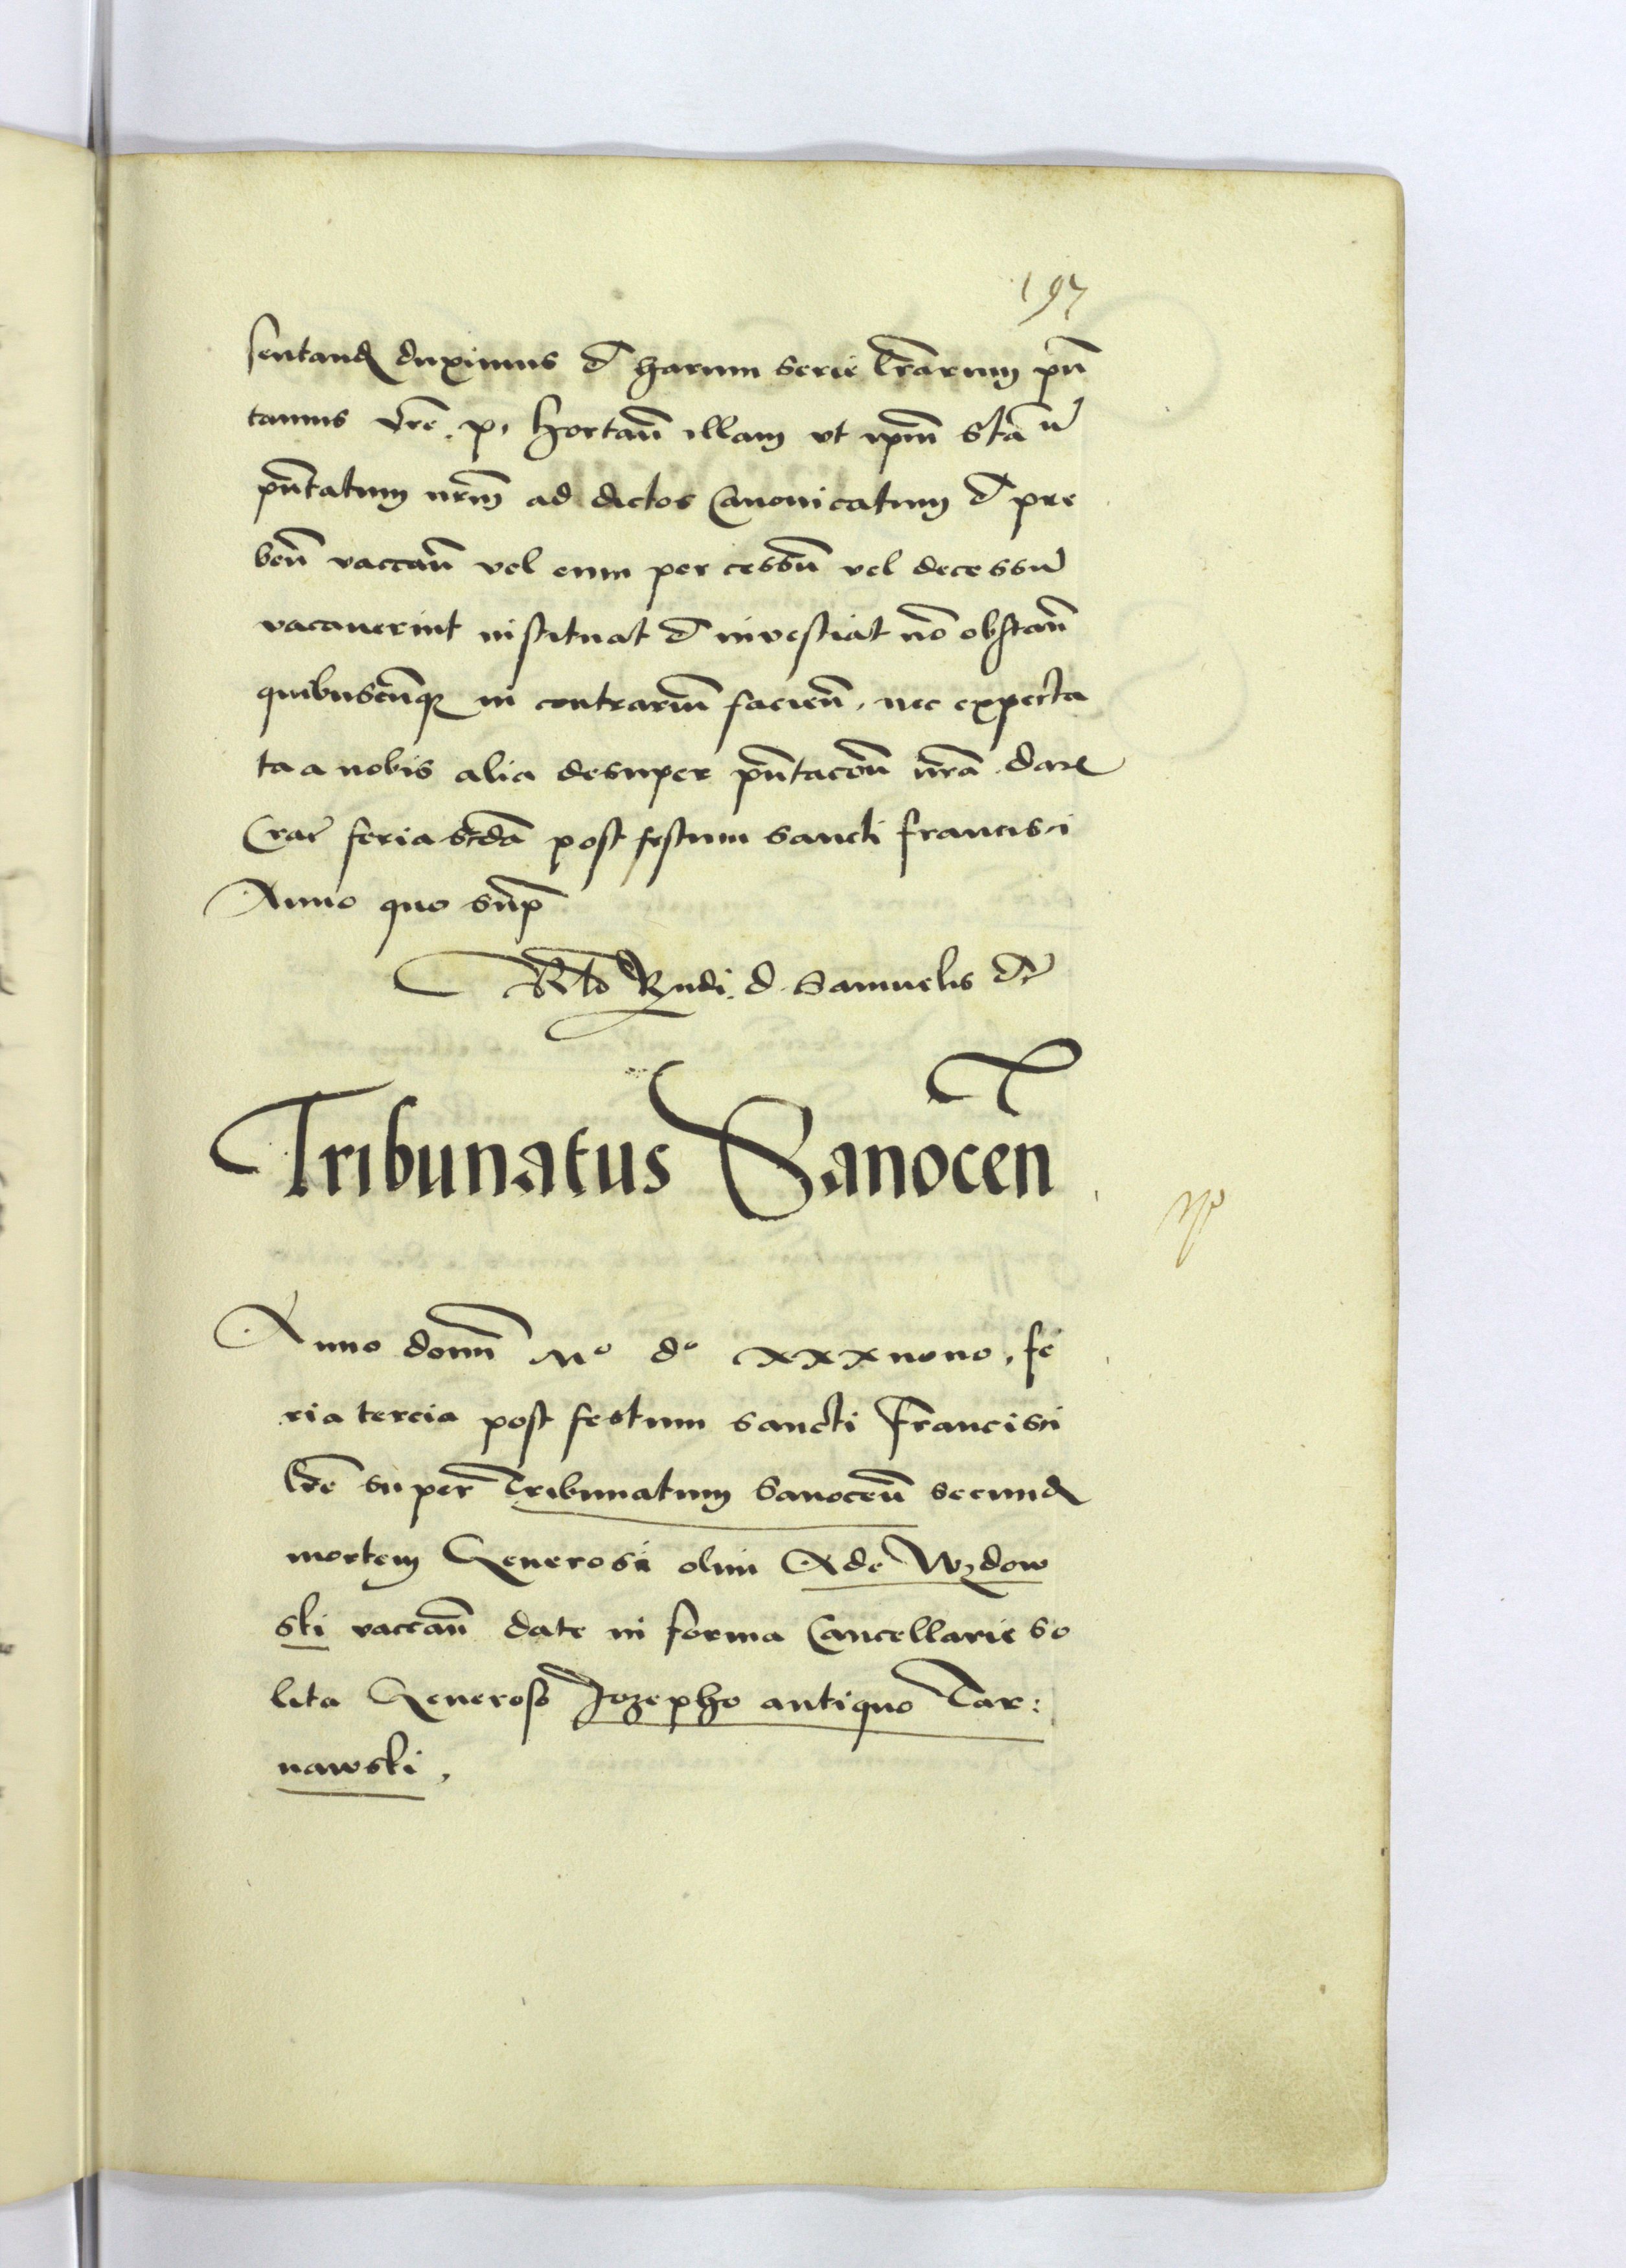 197
sentand duximus et harum serie lrarum pn
tamus vre. p. hortan illam ut ipm Sta n
pntatum nrm ad dictos Canonicatum et pre
ben vaccan vel cum per cessu vel decessu
vacaverint instituat et investiat no obstan
quibuscunque in contrarium facien. nec expecta
ta a nobis alia desuper pntacon nra. Dat
Crac feria scda post festum sancti francisci
Anno quo sup
Rlo Rndi d Samuelis etc
Tribunatus Sanocen
Anno domi Mo do xxxnono, fe
ria tercia post festum sancti Francisci
lre super Tribunatum Sanocen secund
mortem Generosi olim Ade Wzdow
ski vaccan date in forma Cancellarie so
lita Generoso Jozepho antiquo Tar:
nawski.